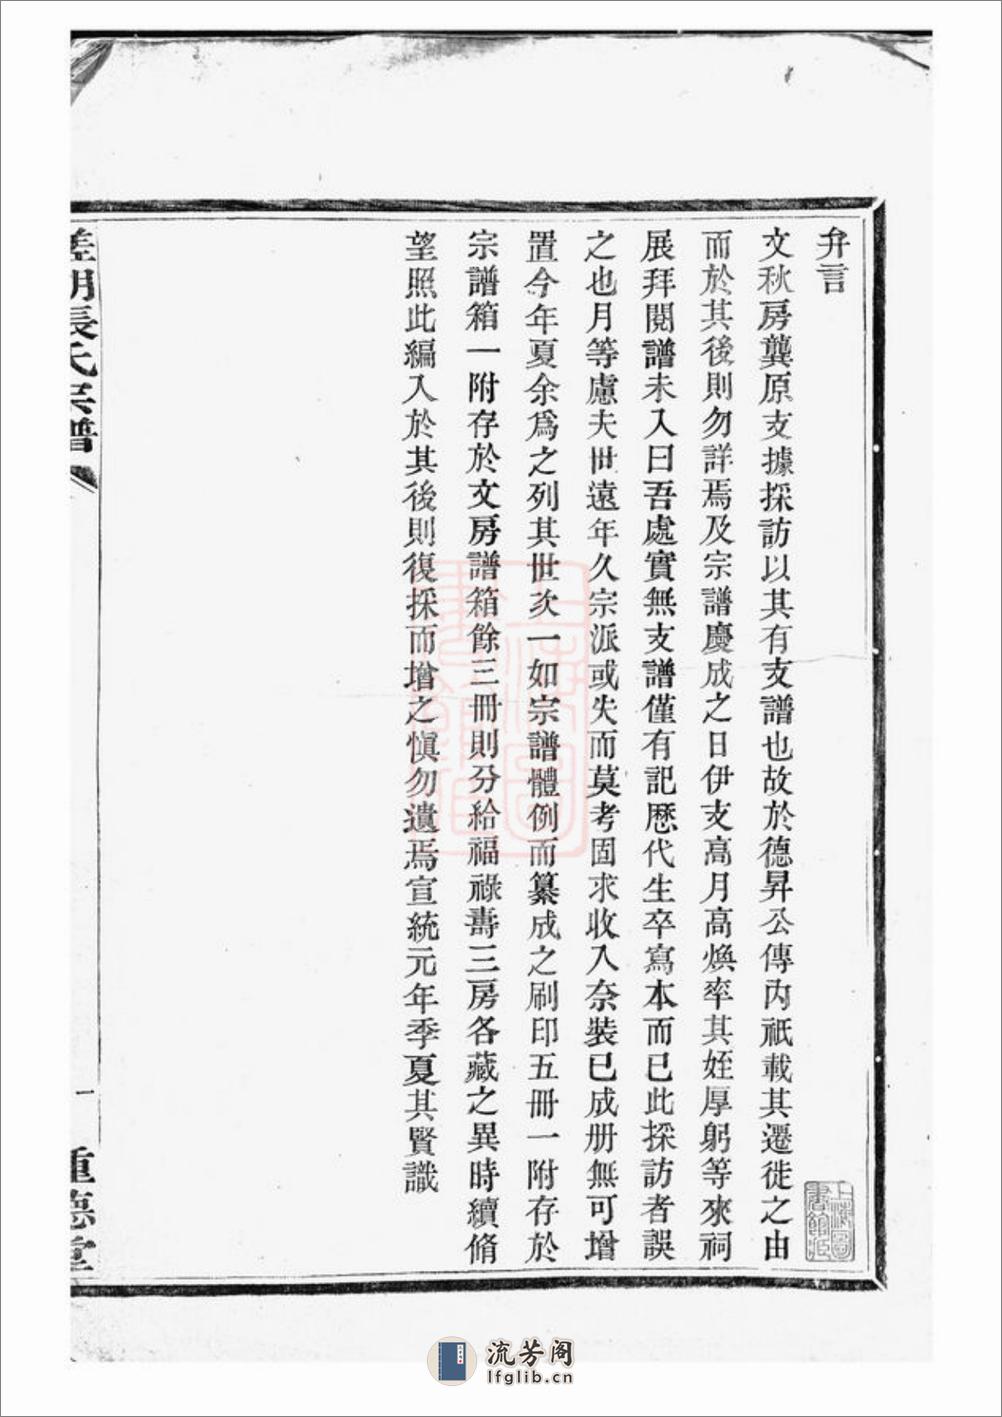 弁言
文秋房龔原支據採訪以其有支譜也故於德昇公傳內祇載其遷徙之由
而於其後則勿詳焉及宗譜慶成之日伊支高月高煥率其姪厚躬等來祠
展拜閱譜未入曰吾處實無支譜僅有記歷代生卒寫本而已此採訪者誤
之也月等慮夫世遠年久宗派或失而莫考固求收入奈裝已成册無可增
置今年夏余爲之列其世次一如宗譜體例而纂成之刷印五冊一附存於
宗譜箱一附存於文房譜箱餘三冊則分給福祿壽三房各藏之異時續脩
望照此編入於其後則復採而增之慎勿遺焉宣統元年季夏其賢識
張氏宗譜
一
重德堂
上海圖書館藏
流芳阁
lfglib.cn